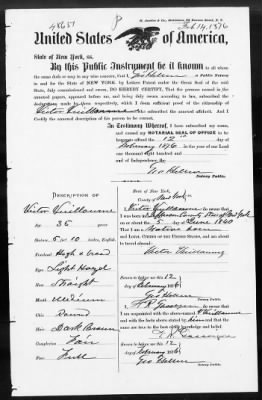 48651
Feb. 14, 1876
United States of America,
State of New York, ss.
By this Public Instrument be it known to all whom
the same doth or may in any wise concern, that I Geo Hellem a Public Notary
in and for the State of NEW YORK, by Letters Patent under the Great Seal of the said
State, duly commissioned and sworn, DO HEREBY CERTIFY, that the persons named in the
annexed papers, appeared and being duly sworn according to law, subscribed the
depositions made by them respectively, which I deem sufficient proof of the citizenship
of Victor Vuillaume who subscribed the annexed affidavit.
In Testimony Whereof, I have subscribed my name,
and caused my NOTARIAL SEAL OF OFFICE to be
hereunto affixed the 12th day of
February 1876, in the year of our Lord
one thousand eight hundred and
and of Independence the
Geo Hellem
Notary Public.
DESCRIPTION OF
Victor Vuillaume
Age 35 years
Stature 5 ft 10 inches, English.
Forehead High &
Eyes Light Hazel
Nose Straight
Mouth Medium
Chin Round
Hair Dark Brown
Complexion Fair
Face Full
State of New York,
County of New York
I, Victor Vuillaume do swear that I
was born in Jefferson County State of New York
on or about the 5 day of
that I am a Native born
and LOYAL CITIZEN of the UNITED STATES, and am about
to travel abroad.
Victor Vuillaume
Sworn to before me this 12
day of February 1876
Geo Hellem
Notary Public.
I am acquainted with the above named V. Vuillaume
and with the facts above stated by him and that the
same are true to the best of my knowledge and belief.
Sworn to before me this 12
day of February 1876
Geo Hellem
Notary Public.